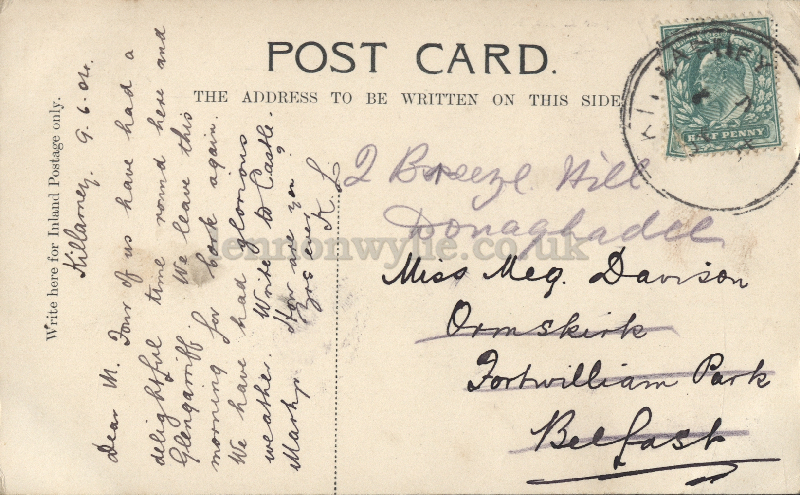 POST CARD.
THE ADDRESS TO BE WRITTEN ON THIS SIDE
Write here for Inland Postage only.
Killarney. 9.6.04.
Dear M. Four of us have had a
delightful time round here and
Glengarriff. We leave this
morning for Cork again.
We have had glorious
weather. Write to Castle-
Martyr. How are you?
Yrs ever
K. L
2 Breeze Hill
Donaghadee
Miss Meg. Davison
Ormskirk
Fortwilliam Park
Belfast
KILLARNEY
HALF PENNY
lennonwylie.co.uk